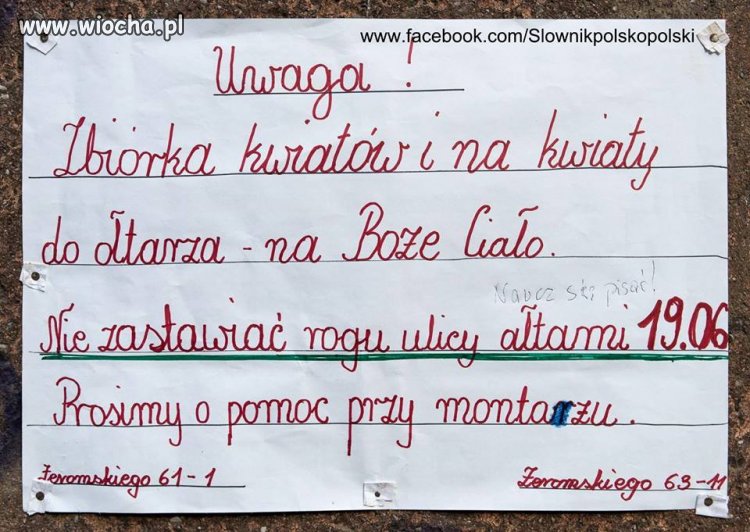 www.wiocha.pl
www.facebook.com/Slownikpolskopolski
Uwaga !
Zbiórka kwiatów i na kwiaty
do ołtarza - na Boże Ciało.
Naucz się pisać!
Nie zastawiać rogu ulicy ałtami 19.06
Prosimy o pomoc przy montarzu.
Żeromskiego 61-1
Żeromskiego 63-11